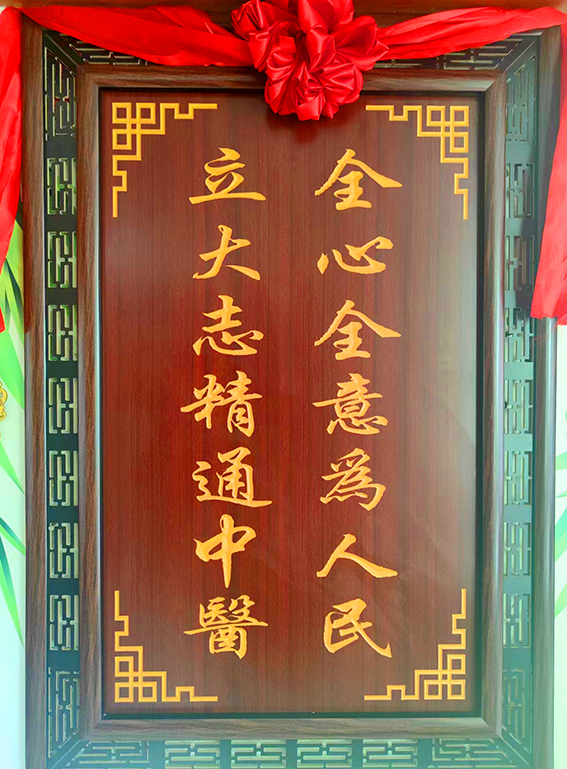 全心全意為人民
立大志精通中醫